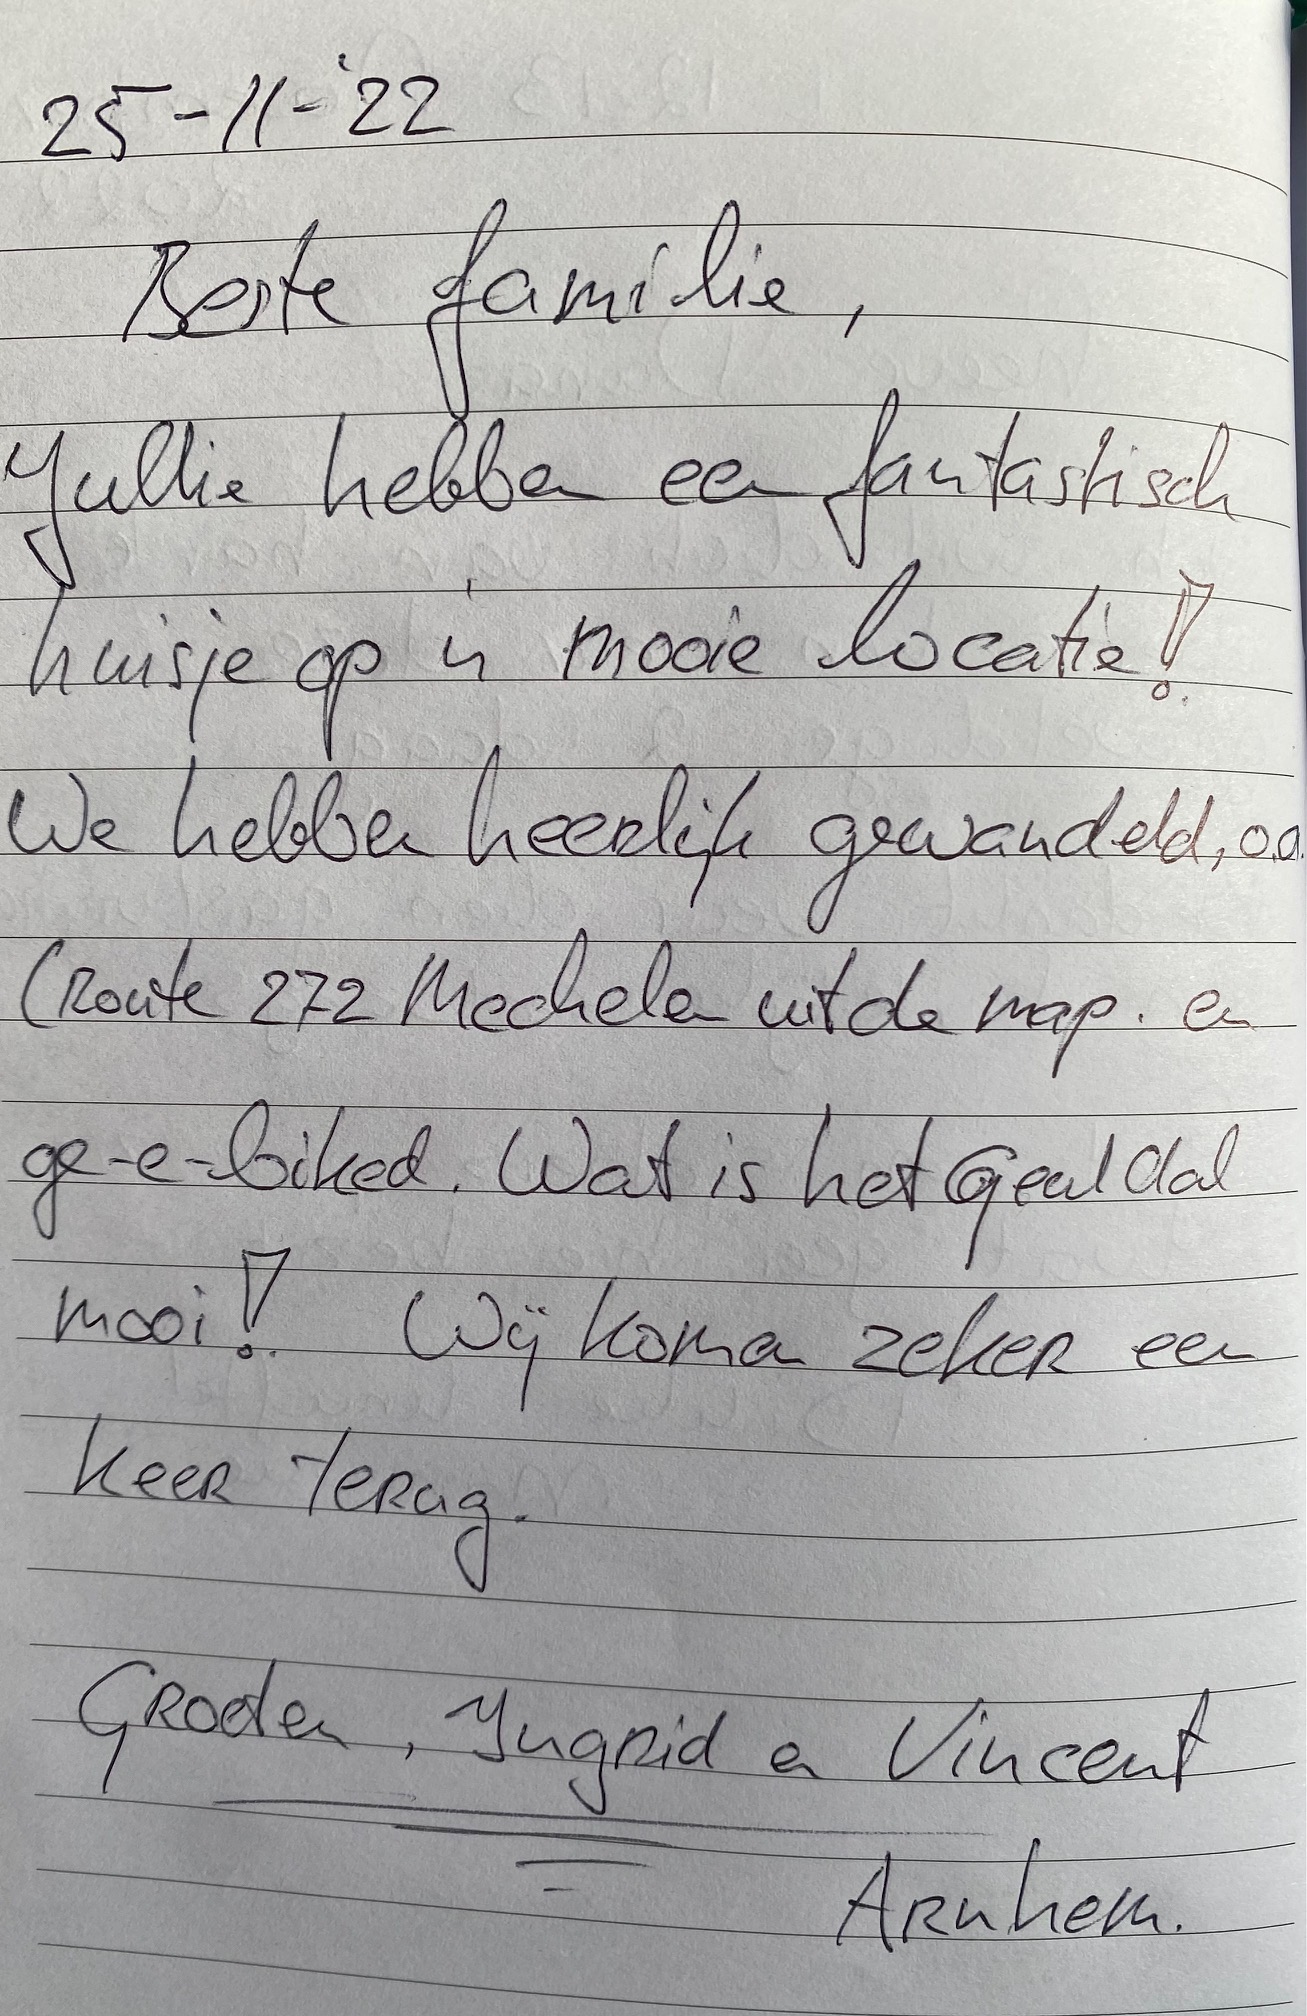 25-11-'22
Beste familie,
Jullie hebben een fantastisch
huisje op 'n mooie locatie!
We hebben heerlijk gewandeld, o.a.
(Route 272 Mechelen uit de map. en
ge-e-biked. Wat is het Geuldal
mooi! Wij komen zeker een
keer terug.
Groeten, Ingrid en Vincent
Arnhem.